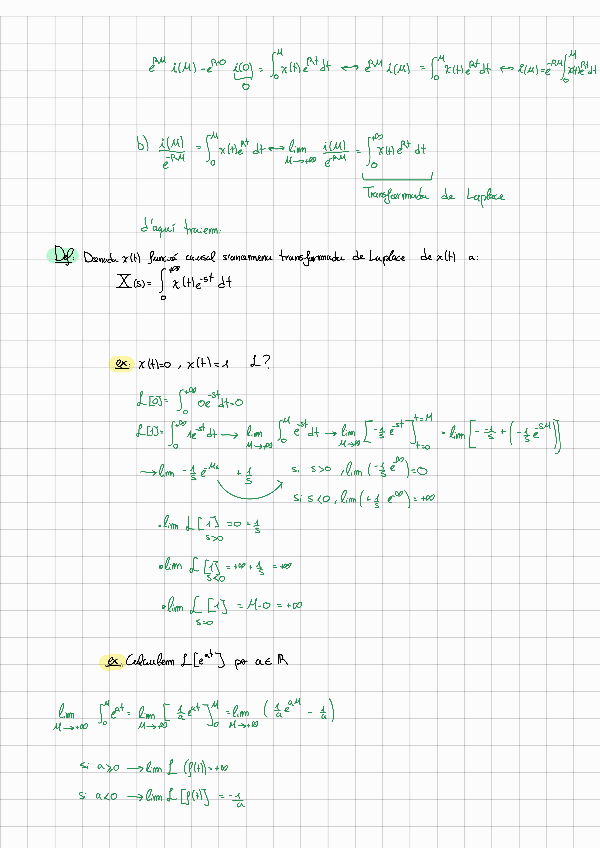 e^{RM} i(M) - e^{R·0} i(0) = ∫_0^M x(t)e^{Rt} dt ↔ e^{RM} i(M) = ∫_0^M x(t)e^{Rt} dt ↔ i(M) = e^{-RM} ∫_0^M x(t)e^{Rt} dt
0
b) i(M)/e^{-RM} = ∫_0^M x(t)e^{Rt} dt ↔ lim_{M→+∞} i(M)/e^{-RM} = ∫_0^{+∞} x(t)e^{Rt} dt
Transformada de Laplace
d'aquí traiem:
Def: Donada x(t) funció causal s'anomena transformada de Laplace de x(t) a:
X(s) = ∫_0^{+∞} x(t)e^{-st} dt
ex: x(t)=0 , x(t)=1 L?
L[0] = ∫_0^{+∞} 0e^{-st} dt=0
L[1] = ∫_0^{+∞} 1e^{-st} dt → lim_{M→+∞} ∫_0^M e^{-st} dt → lim_{M→+∞} [-1/s e^{-st}]_{t=0}^{t=M} = lim [- -1/s + (-1/s e^{-sM})]
→ lim -1/s e^{-Ms} + 1/s si s>0, lim (-1/s e^{-∞}) = 0
si s<0, lim (-1/s e^{∞}) = +∞
• lim L[1]_{s>0} = 0 + 1/s
• lim L[1]_{s<0} = +∞ + 1/s = +∞
• lim L[1]_{s=0} = M-0 = +∞
ex. Calculem L[e^{at}] per a∈ℝ
lim_{M→+∞} ∫_0^M e^{at} = lim_{M→+∞} [1/a e^{at}]_0^M = lim_{M→+∞} (1/a e^{aM} - 1/a)
si a≥0 → lim L (f(t)) = +∞
si a<0 → lim L [f(t)] = -1/a